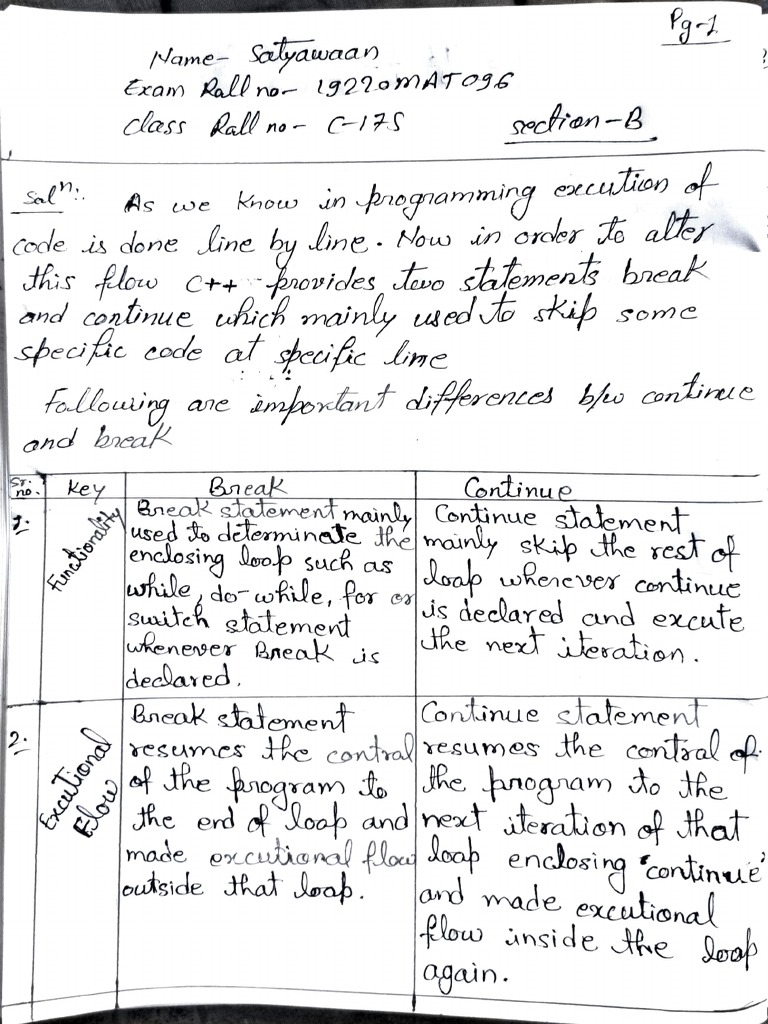 Pg-1
Name- Satyawaan
Exam Rall no- 19220MAT096
Class Rall no- C-175 section-B
Solⁿ:. As we know in programming execution of
code is done line by line. Now in order to alter
this flow C++ provides two statements break
and continue which mainly used to skip some
specific code at specific line
Following are important differences b/w continue
and break
Sr. no. Key Break Continue
1. Functionality
Break statement mainly
used to determinate the
enclosing loop such as
while, do-while, for or
switch statement
whenever Break is
declared.
Continue statement
mainly skip the rest of
loop wherever continue
is declared and excute
the next iteration.
2. Excutional Flow
Break statement
resumes the control
of the program to
the end of loop and
made excutional flow
outside that loop.
Continue statement
resumes the control of
the program to the
next iteration of that
loop enclosing 'continue'
and made excutional
flow inside the loop
again.